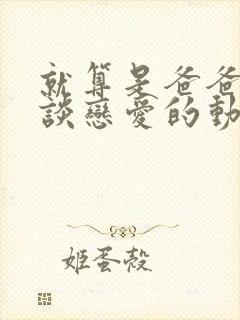 就算是爸爸
談戀愛的動
姬蛋殼